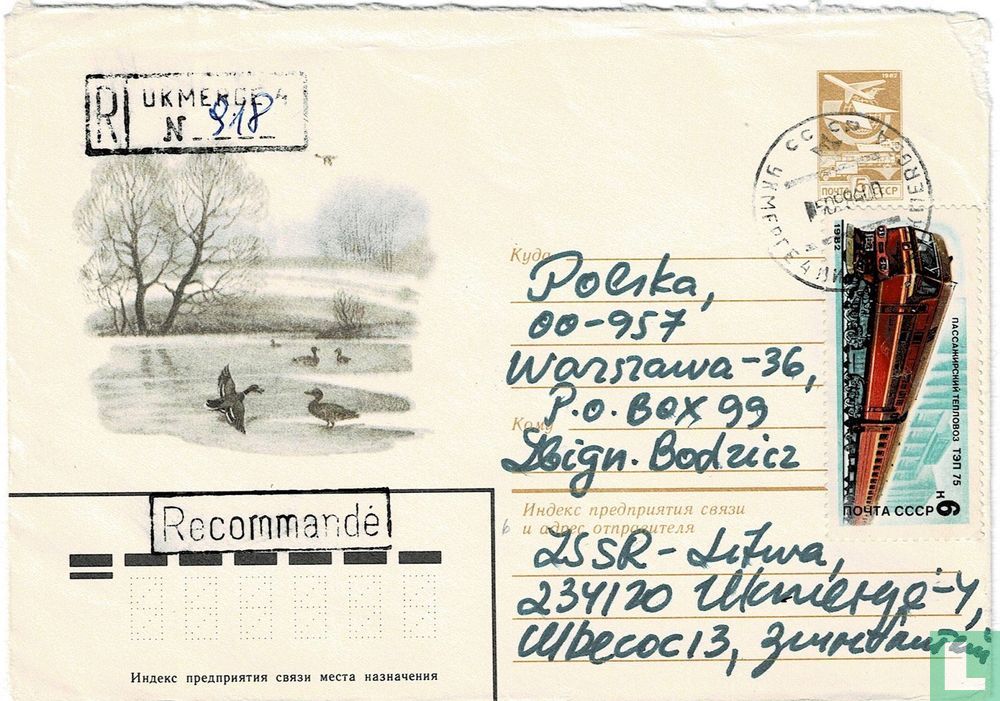 R UKMERGE 4
N 918
1982
ПОЧТА 5 СССР
СССР
УКМЕРГЕ 4
1982
ПАССАЖИРСКИЙ ТЕПЛОВОЗ ТЭП 75
6 К
ПОЧТА СССР
Куда
Polska,
00-957
Warszawa-36,
P.O. BOX 99
Кому
Zbign. Bodzicz
Индекс предприятия связи
и адрес отправителя
ZSSR - Litwa,
234120 Ukmergė-4,
Recommandé
Индекс предприятия связи места назначения
L